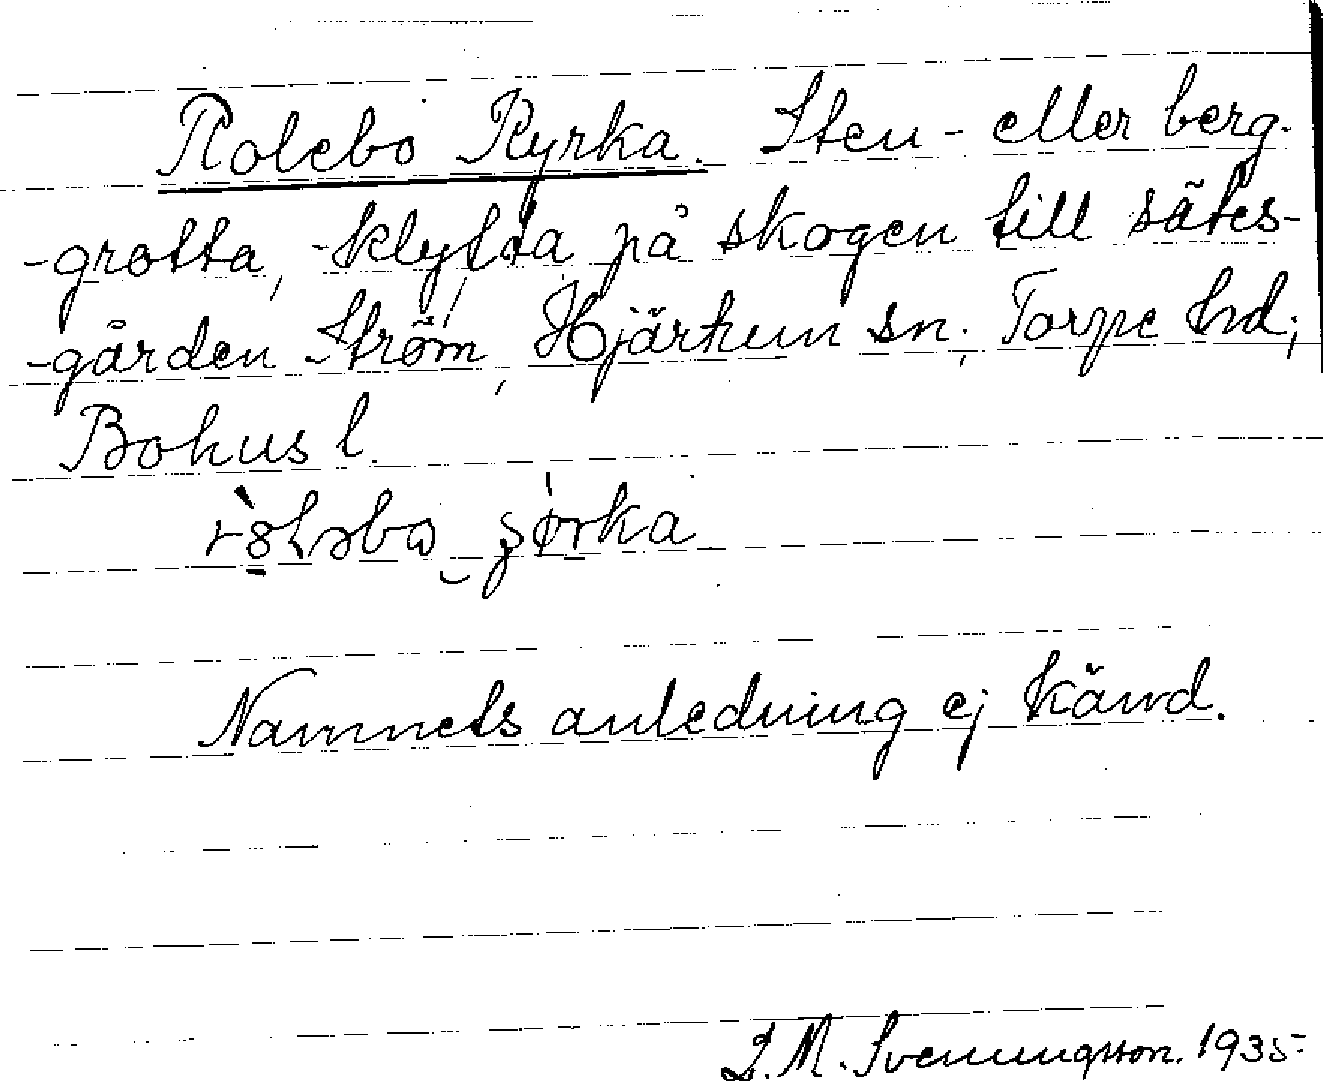 Rolebo Kyrka. Sten- eller berg-
-grotta, -klyfta på skogen till sätes-
-gården Ström, Hjärtum sn; Torpe hd;
Bohus l.
Namnets anledning ej känd.
J. M. Svenungsson. 1935.